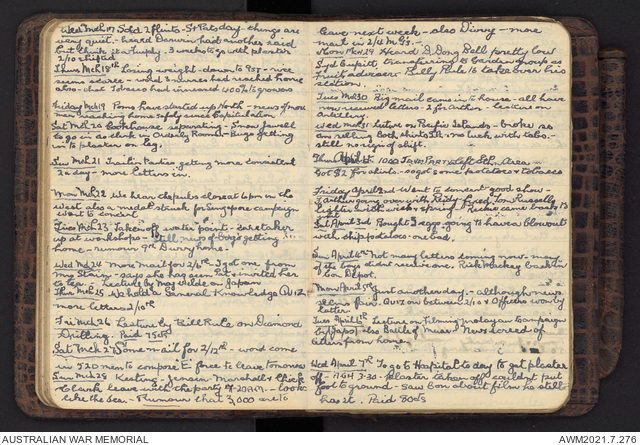 Wed Mch 17 Sold 2 fluits - St Pats day - things are
very quiet - heard Darwin had another raid
but think it a furphy. 3 weeks to go with plaster
2/10 shifted
Thurs Mch 18th Losing weight - down to 9st - rice
seems scarce - word 2 wires had reached home
also - that Tobacco had increased 400% to growers
Friday Mch 19 Poms have started up North - news of more
men reaching home safely since Capitulation
Sat Mch 20 Cookhouse separating - Snow Jewell
to go in as clerk in Orderly Room - Bugs getting
in to plaster on leg.
Sun Mch 21 Trailer Parties getting more consistent
2 a day - more letters in.
Mon Mch 22 We hear the pubs closed at 6 pm in the
west also a medal struck for Singapore campaign
Went to concert
Tues Mch 23 Taken off water point - caretaker
up at workshops - Still news of boys getting
home - rumour 9th Divvy home.
Wed Mch 24 More mail for 2/4th I got one from
Mrs Stacy - says she has seen Pat & invited her
to tea. Lecture by Maj Wilde on Japan
Thu Mch 25 A/c hold a General Knowledge Quiz
more letters 2/10th
Fri Mch 26 Lecture by Bill Rule on Diamond
Drilling. Paid 75cts
Sat Mch 27 Some mail for 2/12th - word come
in 520 men to compose E. force to leave tomorrow
Sun Mch 28 Keeting, Jensen Marshall & Chick
Clark leave with the party - look
like the Sea - Rumour that 3,000 are to
leave next week - also Divvy - more
mail in 2/4 M.Gs.
Mon Mch 29 Heard D. Gong Bell pretty low
Syd Cupitt, transfering to Garden group as
Fruit adviser. Billy Rule to take over his
section.
Tues Mch 30 Big mail came in to house - all have
now received letters - 2 for Anton - lecture on
artillery.
Wed Mch 31 Lecture on Pacific Islands - broke so
am selling both shirts - no luck with tabs -
still no sign of shift.
Thu April 1st 1000 Jawa Party left Sth. Area
Got $2 for shirts - so got some potatoes & tobacco
Friday April 2nd Went to concert - good show -
lighter with wick & spring
Sat April 3rd Bought 2 eggs, going to have a blowout
with chips potatoes - one bad.
Sun April 4th Not many letters coming now - many
of the boys didnt receive one. Rick Mackey back in
Con Depot.
Mon April 5th Just another day - although news
seems fair. Quiz on between 2/10 & Officers won by
latter.
Tues April 6th Lecture on filming Malayan campaign
by Japs, also Battle of Muar. News screed of
cities from home.
Wed April 7th To go to Hospital to day to get plaster
off - 3-30 - plaster taken off couldnt put
foot to ground - saw Con about film he still
has it. Paid 80cts
AUSTRALIAN WAR MEMORIAL
AWM2021.7.276